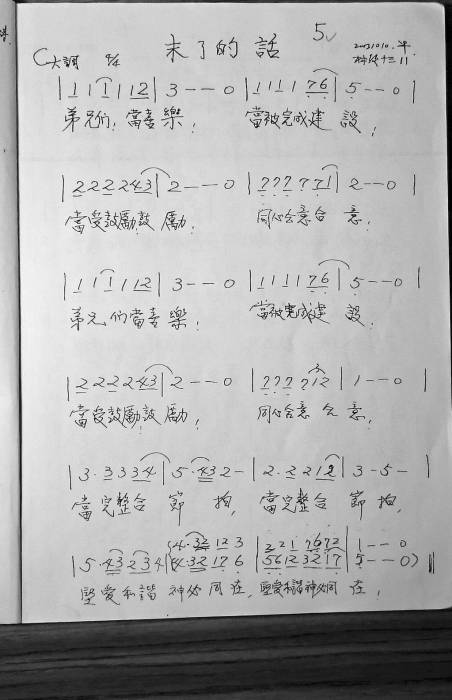 末了的話 5
C大調 4/4 20031010.
| 1 1 1 1 12 | 3 - - 0 | 1 1 1 1 76 | 5 - - 0 |
弟兄們,當喜樂, 當被完成建設,
| 2 2 2 2 43 | 2 - - 0 | 7 7 7 7 71 | 2 - - 0 |
當受鼓勵鼓勵, 同心合意合意,
| 1 1 1 1 12 | 3 - - 0 | 1 1 1 1 76 | 5 - - 0 |
弟兄們當喜樂, 當被完成建設,
| 2 2 2 2 43 | 2 - - 0 | 7 7 7 712 | 1 - - 0 |
當受鼓勵鼓勵, 同心合意合意,
| 3· 3 3 3 4 | 5· 43 2 - | 2· 2 2 1 2 | 3 - 5 - |
當完整合節拍,當完整合節拍,
4· 32 12 3 | 2 2 1 7672 | 1 - - 0
| 5· 43 23 4 | 4· 32 17 6 | 56123217 | 5 - - 0) ||
堅愛和諧神必同在,堅愛和諧神必同在,